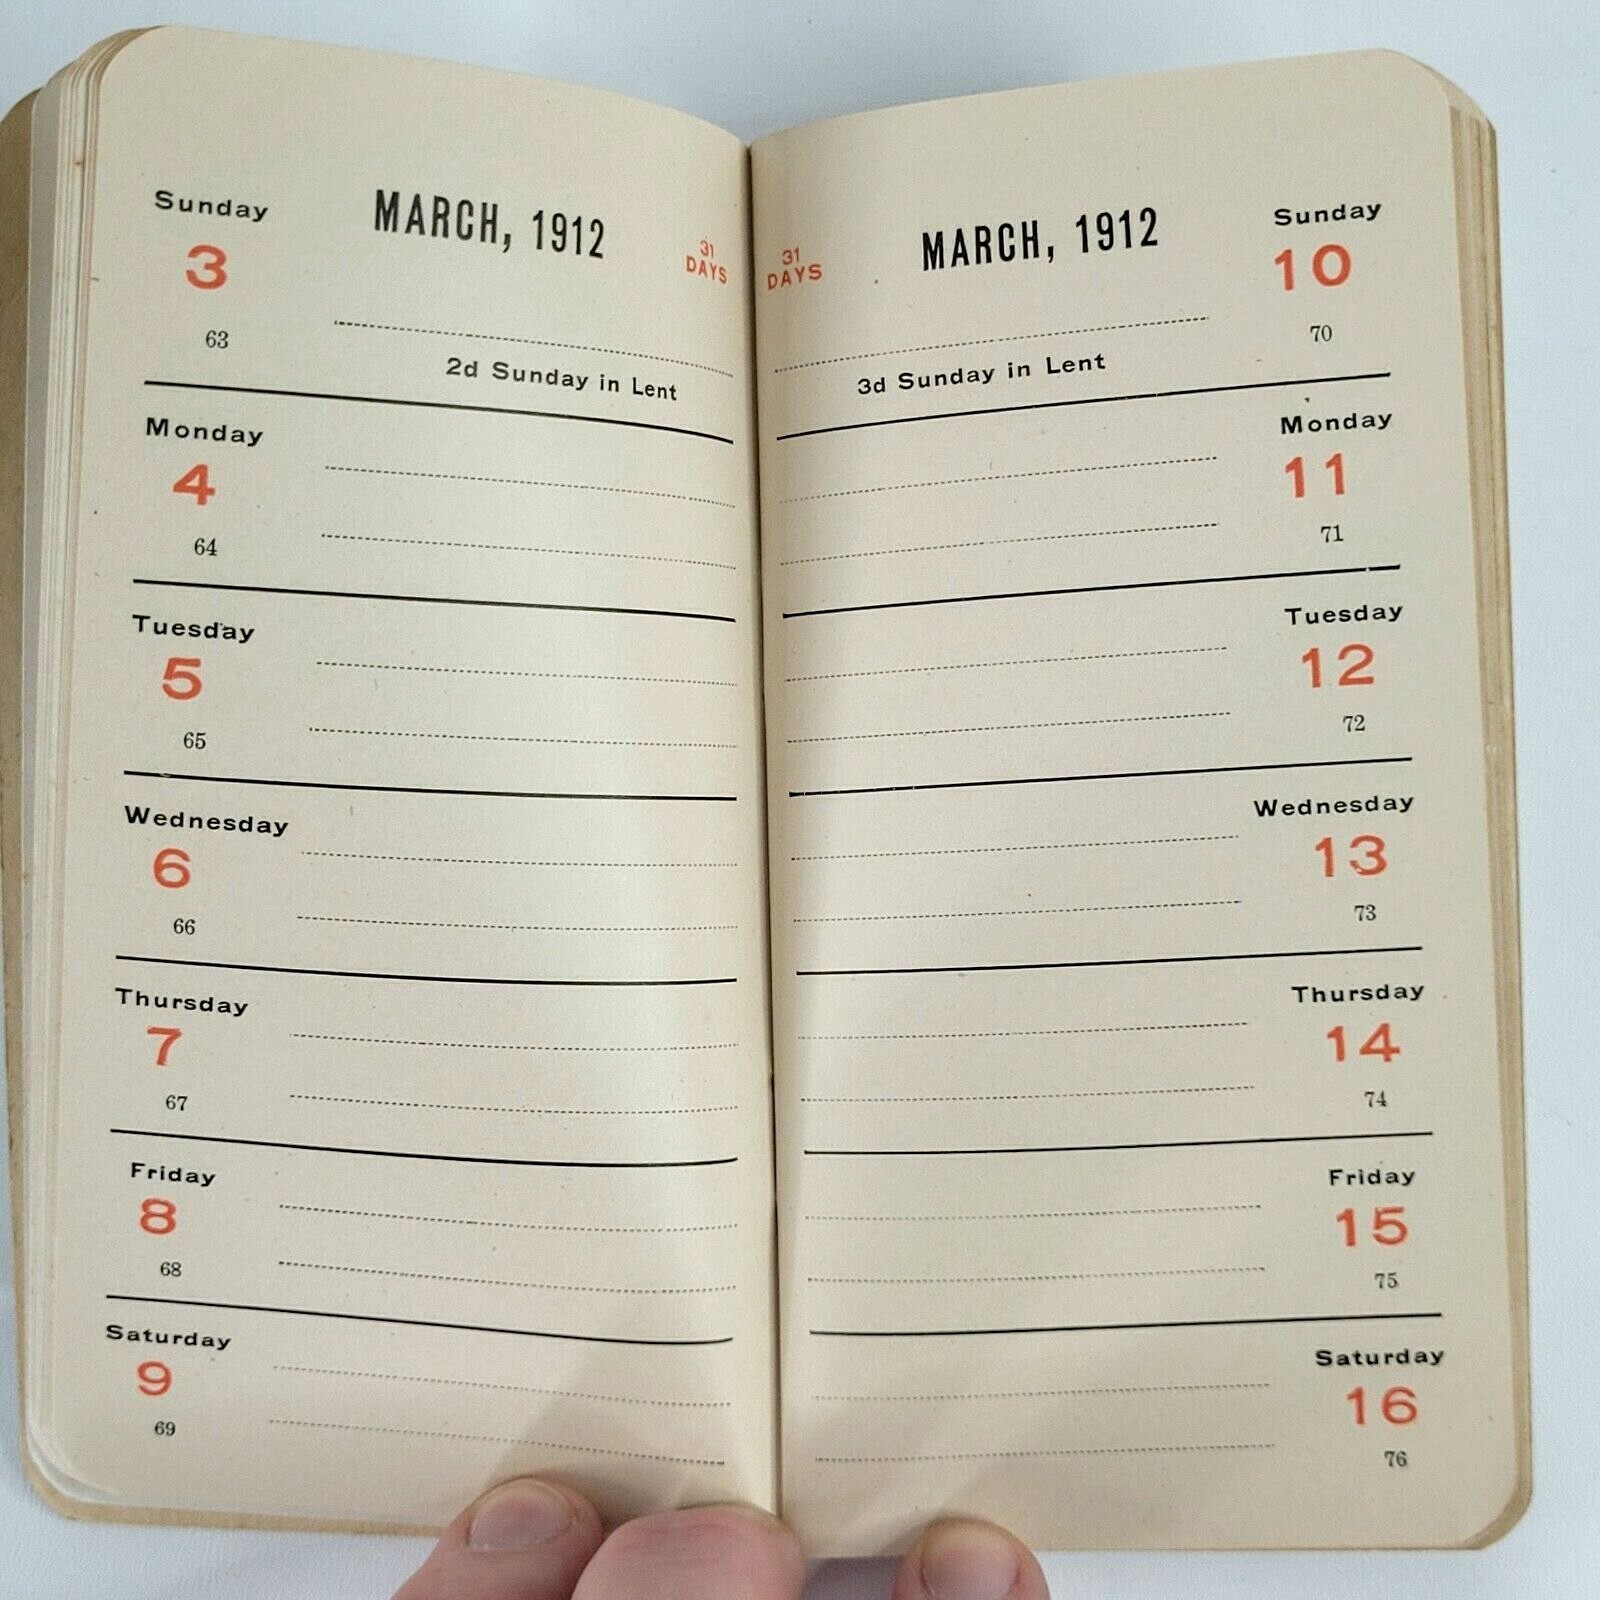 Sunday
MARCH, 1912
31
DAYS
3
63
2d Sunday in Lent
Monday
4
64
Tuesday
5
65
Wednesday
6
66
Thursday
7
67
Friday
8
68
Saturday
9
69
31
DAYS
MARCH, 1912
Sunday
10
70
3d Sunday in Lent
Monday
11
71
Tuesday
12
72
Wednesday
13
73
Thursday
14
74
Friday
15
75
Saturday
16
76